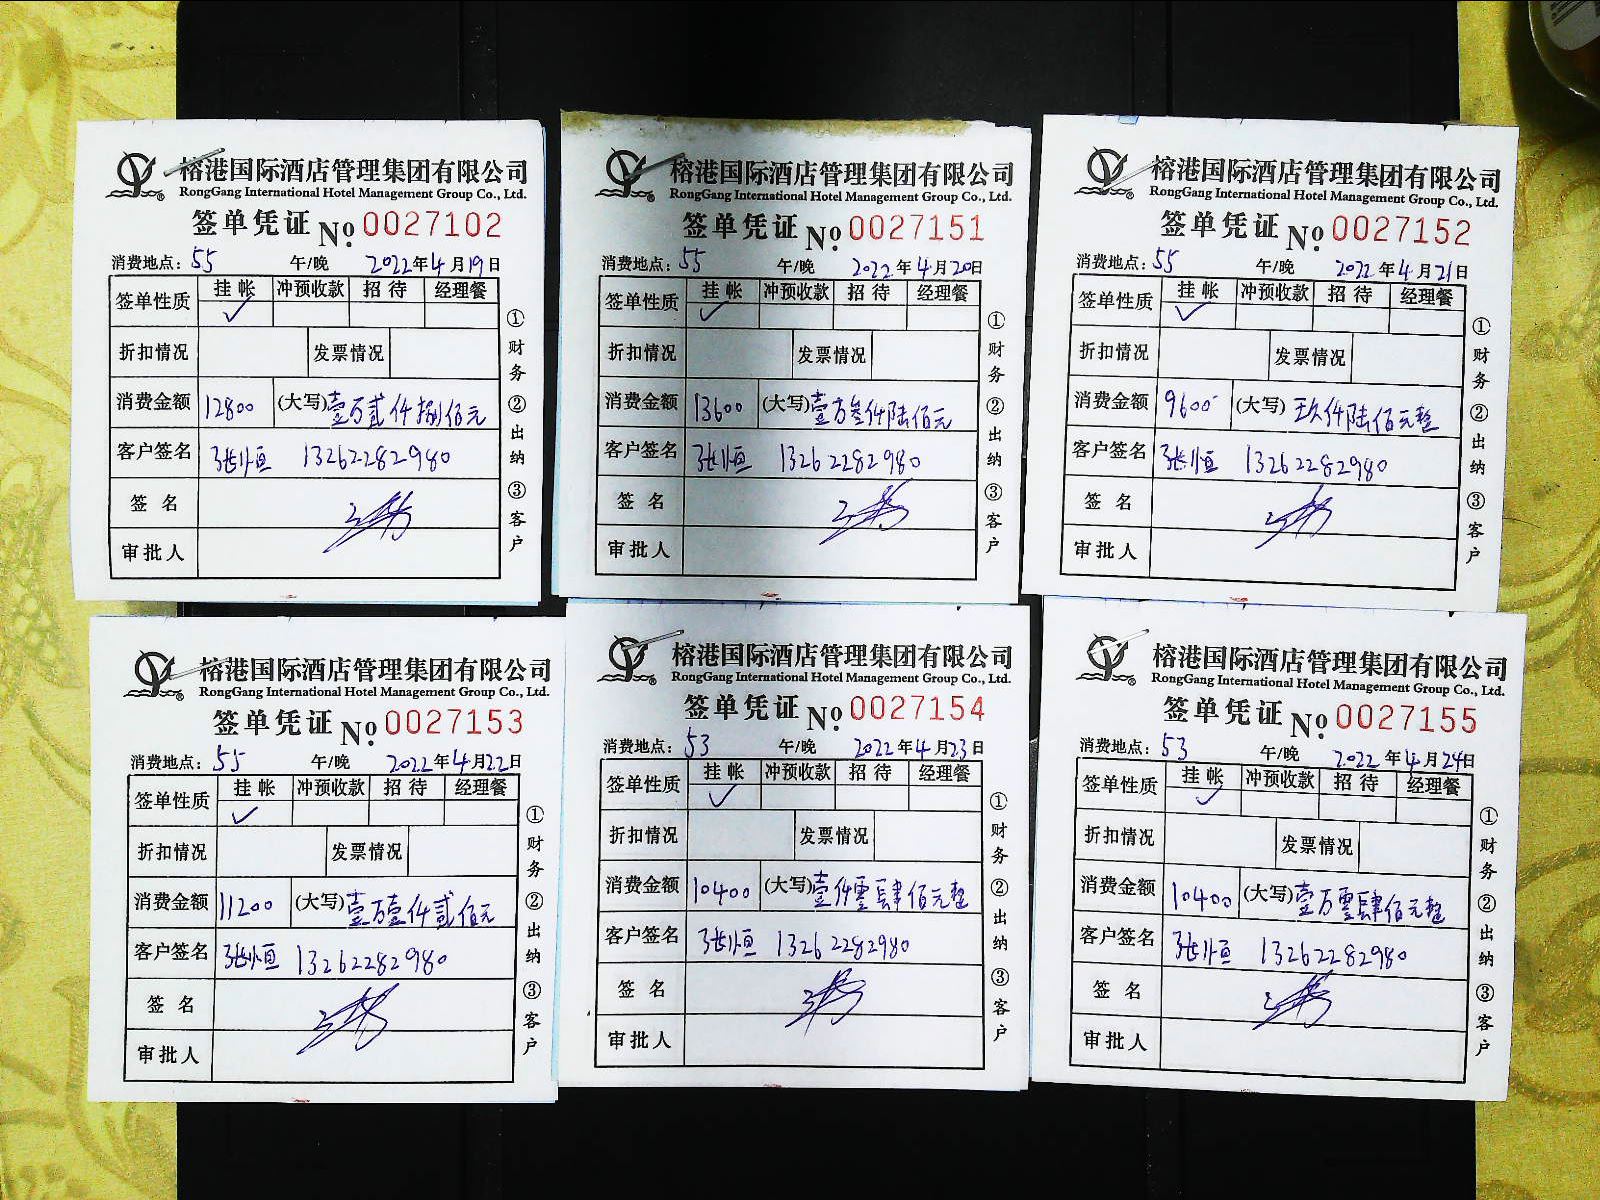 榕港国际酒店管理集团有限公司
RongGang International Hotel Management Group Co., Ltd.
签单凭证 No. 0027102
消费地点: 55 午/晚 2022年4月19日
签单性质 挂帐 冲预收款 招待 经理餐
✓
折扣情况 发票情况
消费金额 12800 (大写)壹万贰仟捌佰元
客户签名 张恒 13262282980
签名
审批人
①财务 ②出纳 ③客户
榕港国际酒店管理集团有限公司
RongGang International Hotel Management Group Co., Ltd.
签单凭证 No. 0027151
消费地点: 55 午/晚 2022年4月20日
签单性质 挂帐 冲预收款 招待 经理餐
✓
折扣情况 发票情况
消费金额 13600 (大写)壹万叁仟陆佰元
客户签名 张恒 13262282980
签名
审批人
①财务 ②出纳 ③客户
榕港国际酒店管理集团有限公司
RongGang International Hotel Management Group Co., Ltd.
签单凭证 No. 0027152
消费地点: 55 午/晚 2022年4月21日
签单性质 挂帐 冲预收款 招待 经理餐
✓
折扣情况 发票情况
消费金额 9600 (大写)玖仟陆佰元整
客户签名 张恒 13262282980
签名
审批人
①财务 ②出纳 ③客户
榕港国际酒店管理集团有限公司
RongGang International Hotel Management Group Co., Ltd.
签单凭证 No. 0027153
消费地点: 55 午/晚 2022年4月22日
签单性质 挂帐 冲预收款 招待 经理餐
✓
折扣情况 发票情况
消费金额 11200 (大写)壹万壹仟贰佰元
客户签名 张恒 13262282980
签名
审批人
①财务 ②出纳 ③客户
榕港国际酒店管理集团有限公司
RongGang International Hotel Management Group Co., Ltd.
签单凭证 No. 0027154
消费地点: 53 午/晚 2022年4月23日
签单性质 挂帐 冲预收款 招待 经理餐
✓
折扣情况 发票情况
消费金额 10400 (大写)壹仟零肆佰元整
客户签名 张恒 13262282980
签名
审批人
①财务 ②出纳 ③客户
榕港国际酒店管理集团有限公司
RongGang International Hotel Management Group Co., Ltd.
签单凭证 No. 0027155
消费地点: 53 午/晚 2022年4月24日
签单性质 挂帐 冲预收款 招待 经理餐
✓
折扣情况 发票情况
消费金额 10400 (大写)壹万零肆佰元整
客户签名 张恒 13262282980
签名
审批人
①财务 ②出纳 ③客户